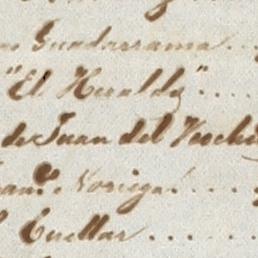 Guadarrama ...
"El Heraldo" ....
de Juan del
Noriega ...
Cuellar ....